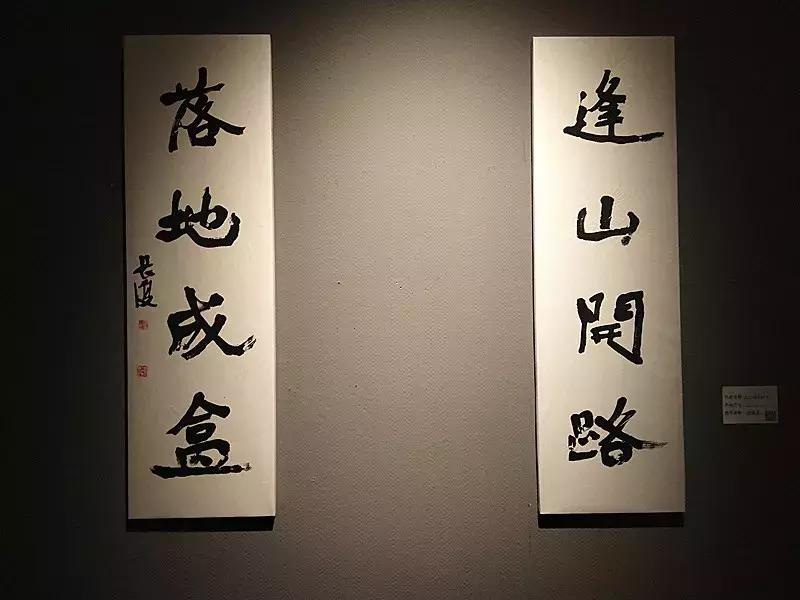 逢山開路
落地成盒